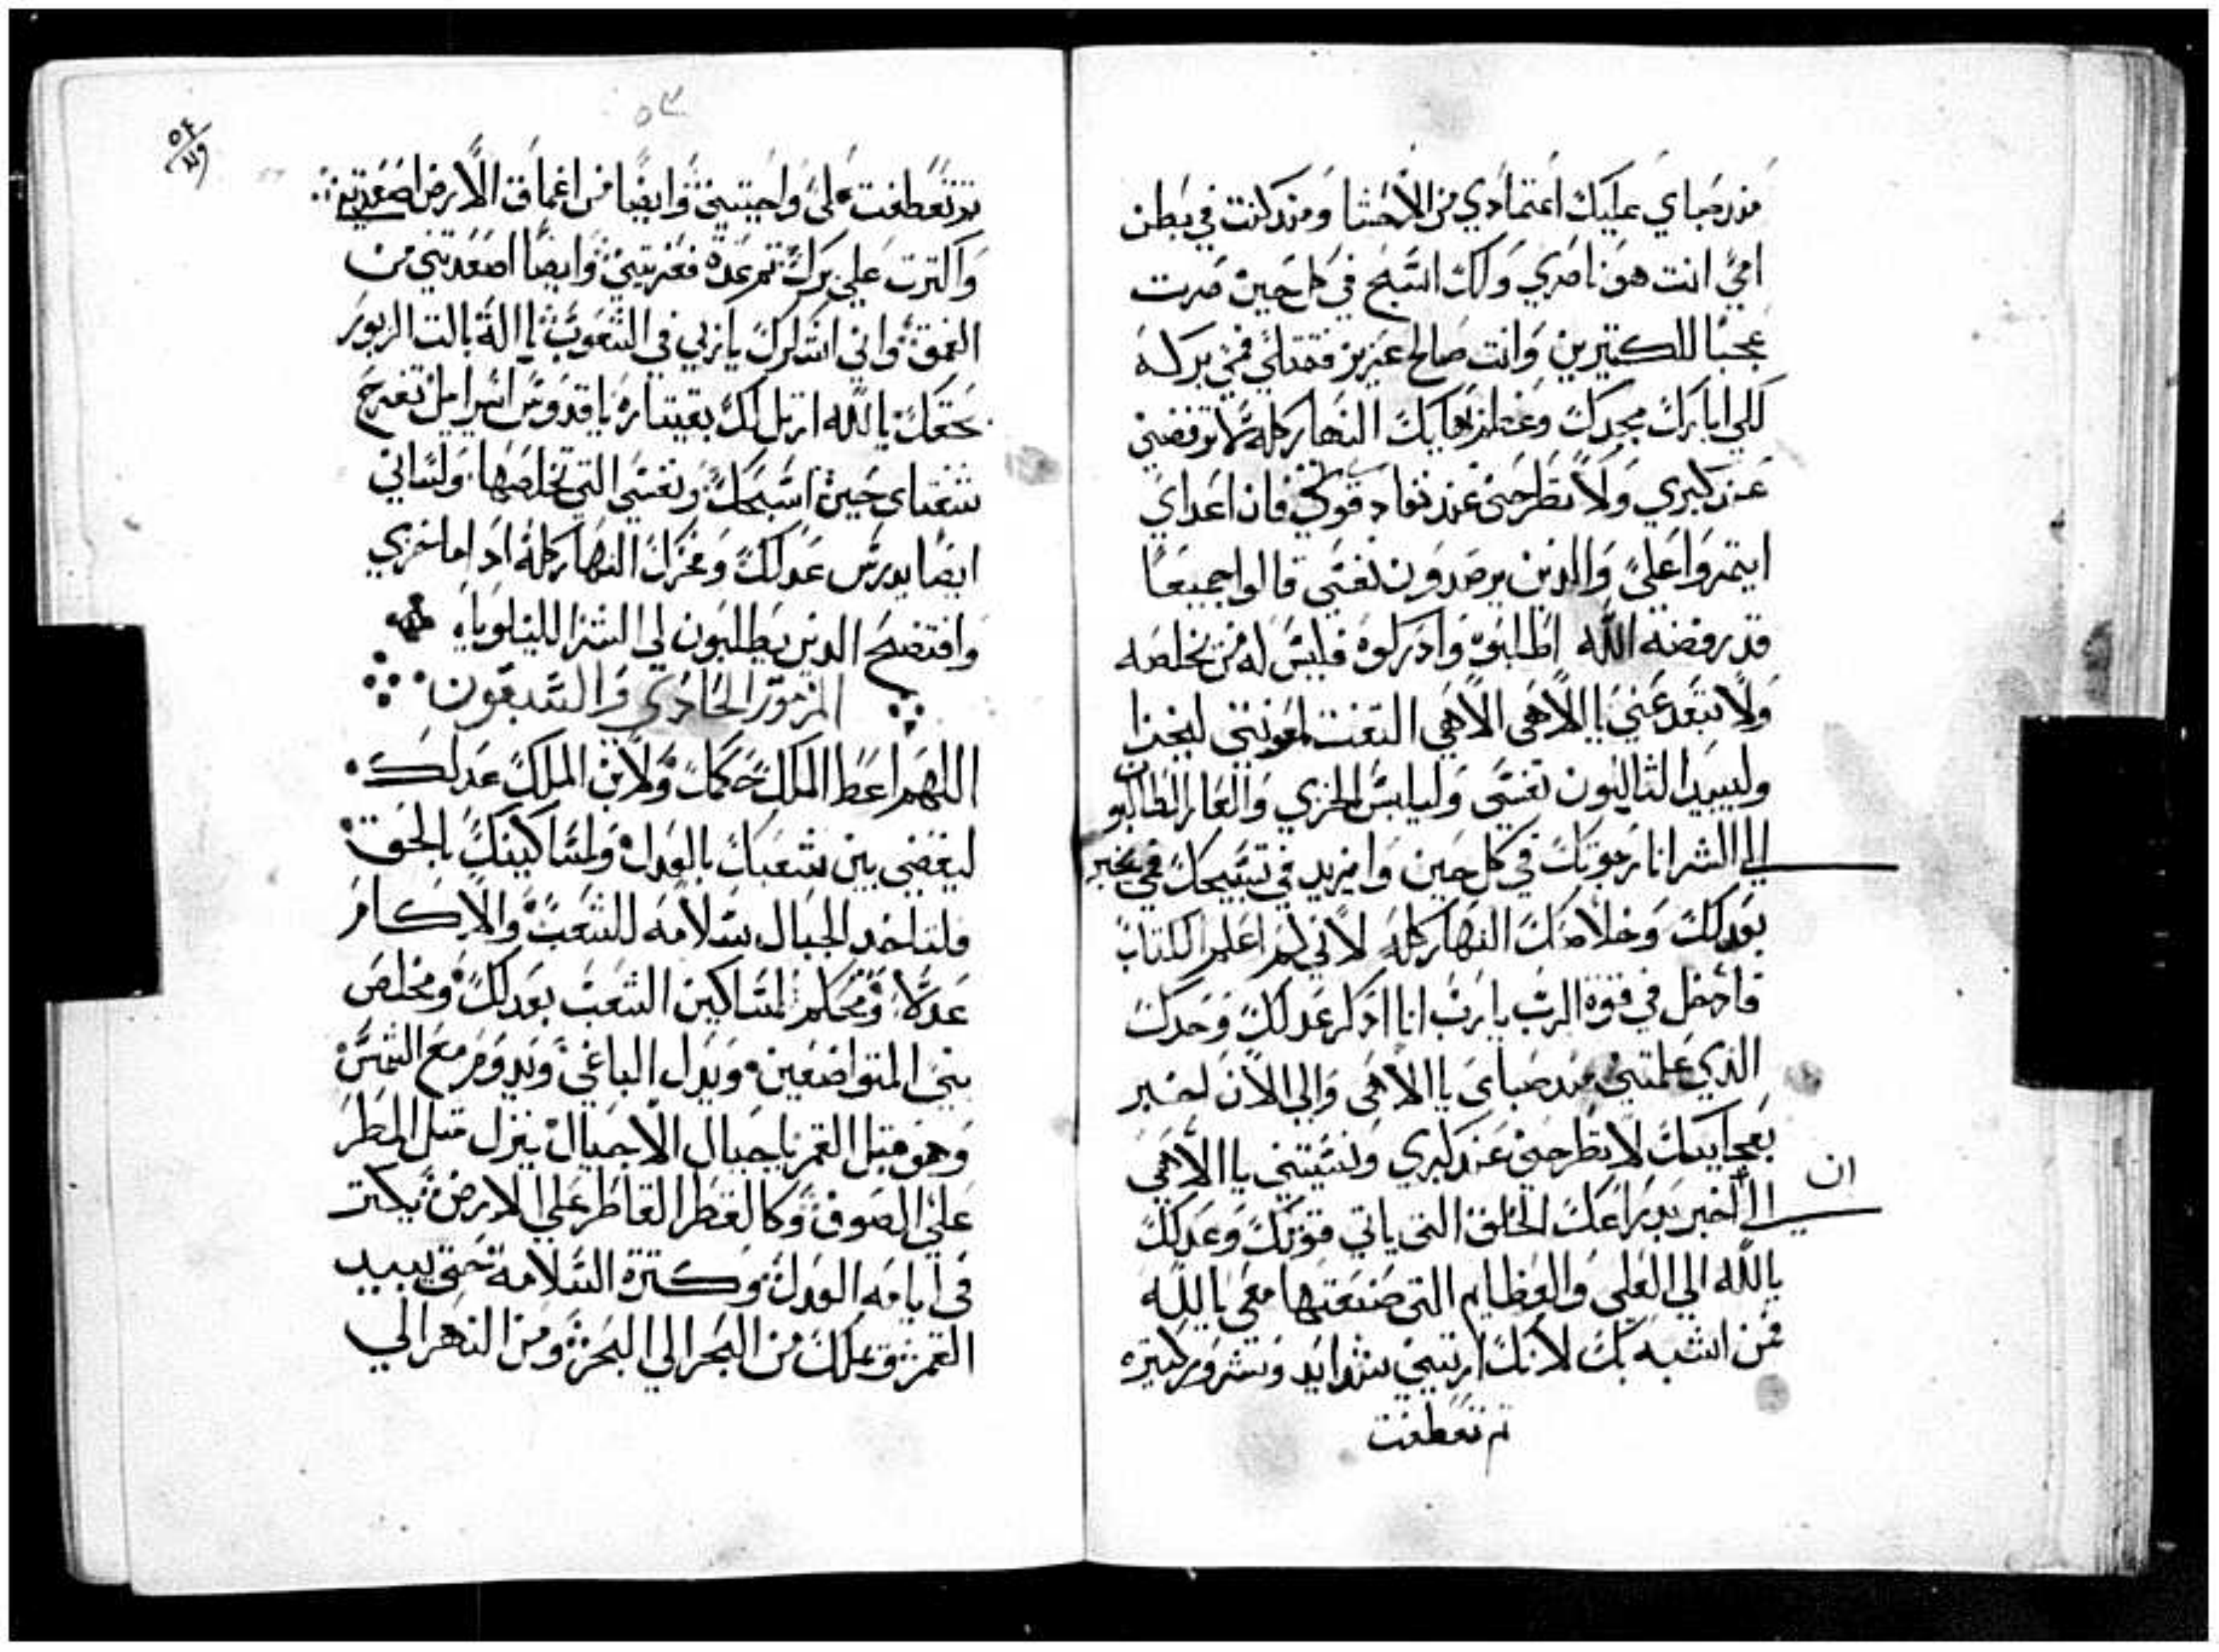 منذ صباي عليك اعتمادي من الاحشا ومنذ كنت في بطن
امي انت هو ناصري ولك اسبح في كل حين صرت
عجبا للكتيرين وانت صالح عزيز فمتلي فمي بركه
لكي ابارك مجدك وعظم بهايك النهار كله لا ترفضني
عند كبري ولا تطرحني عند نفاد قوتي فان اعداي
ايتمروا علي والدين يرصدون نفسي قالوا جميعا
قد رفضه الله اطلبوه وادركوه فليس له من يخلصه
ولا تبعد عني يا الاهي الاهي التفت لمعونتي ليخزا
وليبيد التاليون نفسي وليلبس الخزي والعار الطالبون
لي الشر انا ارجوك في كل حين وازيد في تسبيحك فمي يخبر
بعدلك وخلاصك النهار كله لاني لم اعلم الكتاب
فادخل في قوة الرب يارب انا ادكر عدلك وحدك
الذي علمتني مند صباي يا الاهي والي الان اخبر
بعجايبك لا تطرحني عند كبري وتسيتني يا الاهي
ان
الي اخبر بدراعك الخلق التي ياتي قوتك وعدلك
يالله الي العلي والعظايم التي صنعتها معي يالله
فمن اشبه بك لانك اريتني شدايد وشرور كتيره
تم تعطفت
٥٣
٥٤
تم تعطفت علي واحييتني وايضا من اعماق الارض اصعدتني
واكترت علي برك تم عدة فعزيتني وايضا اصعدتني من
العمق واني اشكرك يا ربي في الشعوب يا الله بالت الزبور
بحقك يا الله ارتل لك بقيتاره يا قدوس اسراييل تفرح
شفتاي حين اسبحك ونفسي التي تخلصها ولساني
ايضا يدرس عدلك وعزك النهار كله اد اما خزي
وافتضح الدين يطلبون لي الشر الليلويا
المزمور الحادي والسبعون
اللهم اعط الملك حكمك ولابن الملك عدلك
ليقضي بين شعبك بالعدل ولمساكينك بالحق
فلتاخد الجبال سلامه للشعب والاكام
عدلا ومحكم لمساكين الشعب بعدلك ومخلص
بني المتواضعين ويدل الباغي ويدوم مع الشمس
وهو قبل القمر يا جبال الاجيال ينزل متل المطر
علي الصوف وكالقطر القاطر علي الارض يكتر
في ايامه العدل وكترة السلامة حتي يبيد
القمر ويملك من البحر الي البحر ومن النهر الي